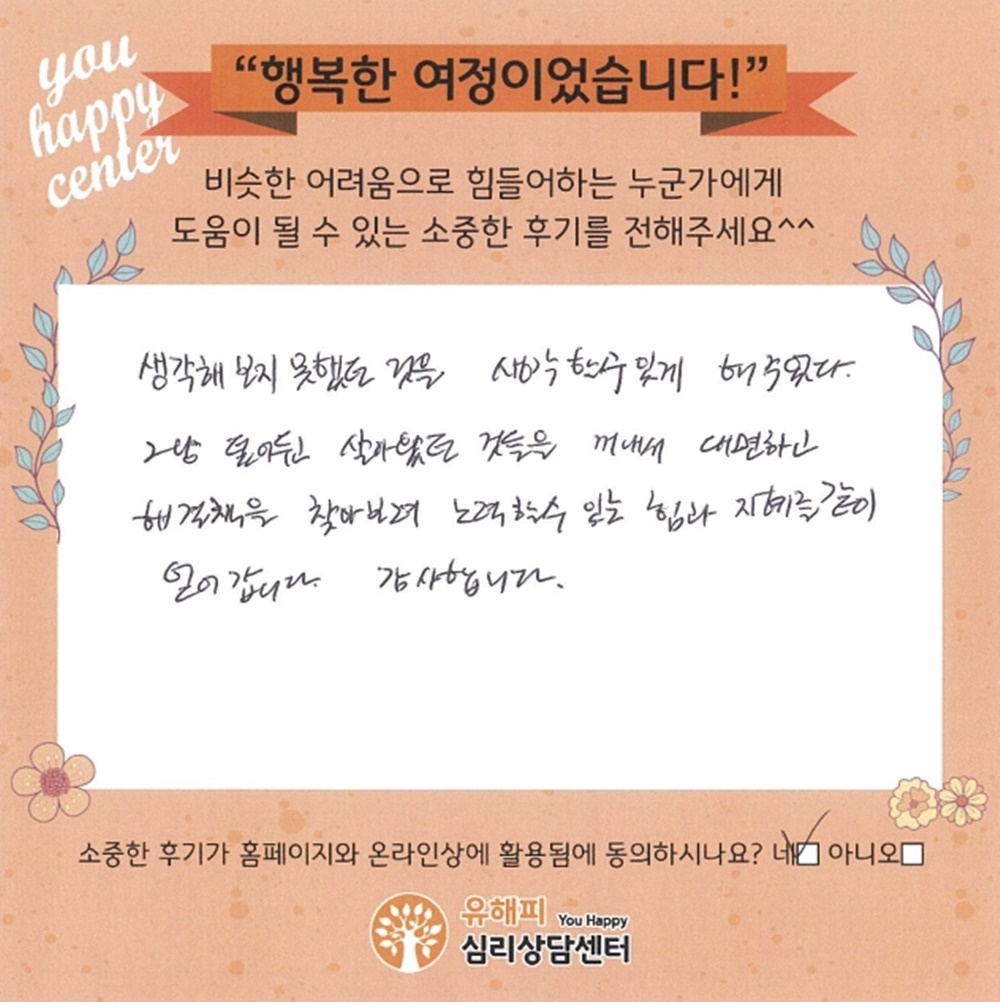 you
happy
center
“행복한 여정이었습니다!”
비슷한 어려움으로 힘들어하는 누군가에게
도움이 될 수 있는 소중한 후기를 전해주세요^^
생각해 보지 못했던 것을 생각할수있게 해주었다.
그냥 덮어두고 살아왔던 것들을 꺼내서 대면하고
해결책을 찾아보려 노력할수 있는 힘과 지혜를 같이
얻어 갑니다. 감사합니다.
소중한 후기가 홈페이지와 온라인상에 활용됨에 동의하시나요? 네 아니오
유해피 You Happy
심리상담센터